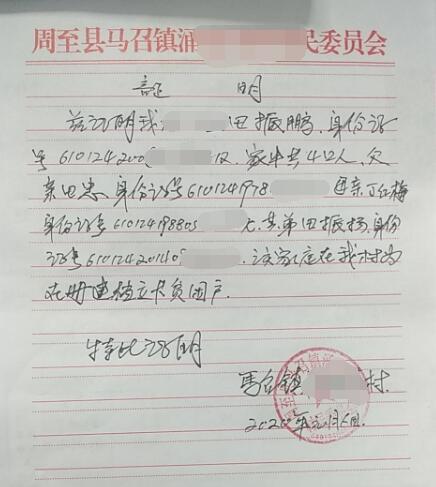 周至县马召镇涌 民委员会
证 明
兹证明我 田振鹏、身份证
号610124200 仅、家中共4口人、父
亲田忠、身份证号6101241978 母亲丁红梅
身份证号61012419880 弟田振扬,身份
证号6101242014 该家庭在我村为
在册建档立卡贫困户.
特此证明
马召镇 村
2020年